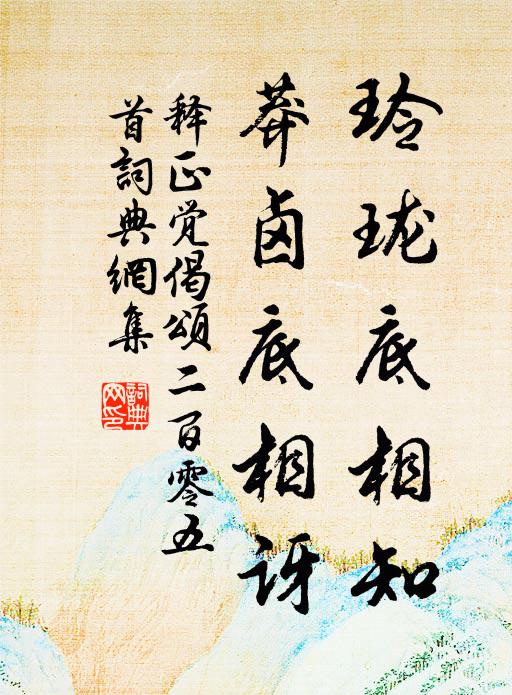 玲珑底相知
莽卤底相讶
释正觉偈颂二百零五
首詞典網集
詞典網印